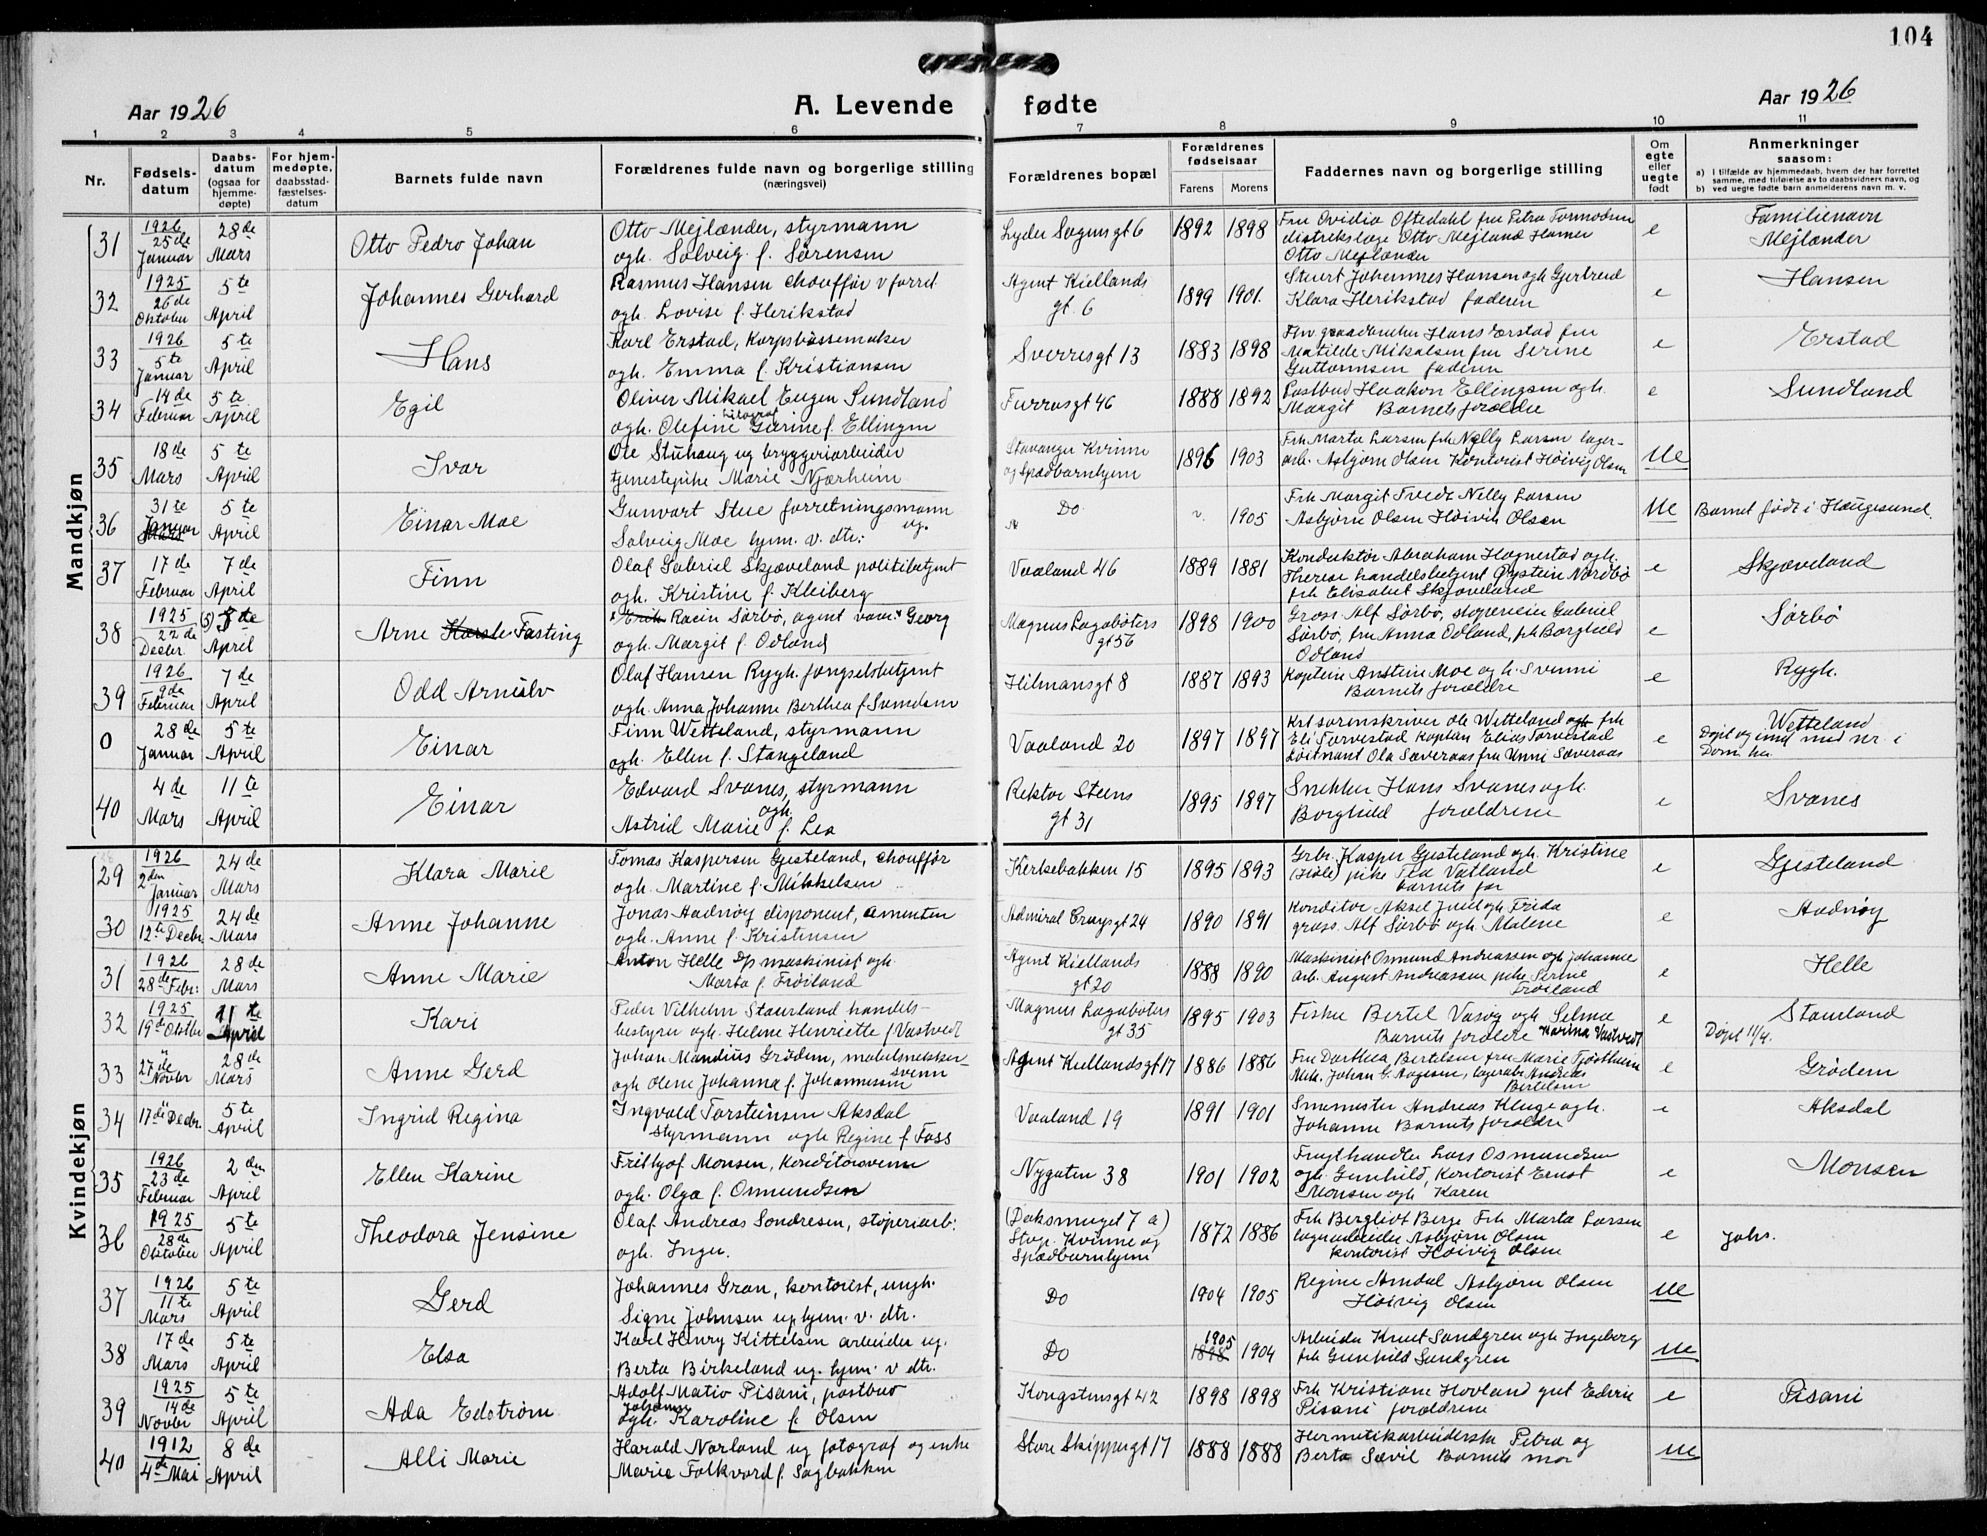 104
Aar 1926
A. Levende fødte
Aar 1926
1 2 3 4 5 6 7 8 9 10 11
Nr.
Fødsels-datum
Daabs-datum (ogsaa for hjemme-døpte)
For hjem-medøpte, daabsstad-fæstelses-datum
Barnets fulde navn
Forældrenes fulde navn og borgerlige stilling (næringsvei)
Forældrenes bopæl
Forældrenes fødselsaar
Farens Morens
Faddernes navn og borgerlig stilling
Om egte eller uegte født
Anmerkninger saasom:
a) I tilfælde av hjemmedaab, hvem der har forrettet samme, med tilføielse av to daabsvidners navn, og
b) ved uegte fødte barn anmelderens navn m. v.
Mandkjøn
31 1926 25de Januar 28de Mars Otto Pedro Johan Otto Mejlænder, styrmann ogh. Solveig f. Sørensen Lyder Sagensgt 6 1892 1898 Fru Ovidia Oftedahl fru Petra Tormodsen distriktslæge Otto Mejlænd Hamer Otto Mejlænder e Familienavn Mejlænder
32 1925 26de Oktober 5te April Johannes Gerhard Rasmus Hansen chouffør v forret ogh. Lovise f. Herikstad Agent Kiellands gt. 6 1899 1901. Johannes Hansen ogh Gjertrud Klara Herikstad faderen e Hansen
33 1926 5te Januar 5te April Hans Karl Erstad, Korpsbøssemaker ogh. Emma f. Kristiansen Sverresgt 13 1883 1898 Hans Erstad fru Matilde Mikalsen fru Serine Guttormsen faderen e Erstad
34 14de Februar 5te April Egil Oliver Mikael Eugen Sundland litograf ogh. Olefine Gurine f. Ellingsen Furrasgt 46 1888 1892 Postbud Haakon Ellingsen ogh. Margit Barnets forældre e Sundland
35 18de Mars 5te April Ivar Ole Stuhaug ug bryggeriarbeider tjenestepike Marie Njærheim Stavanger Kvinne og Spædbarnhjem 1896 1903 Frk Marta Larsen frk Nelly Larsen lager-arb. Asbjørn Olsen Kontorist Høivig Olsen Ue
36 31te Januar 5te April Einar Moe Gunvart Stue forretningsmann og. Solveig Moe hjem. v. dtr: Do 1905 Frk Margit Tvedt Nelly Larsen Asbjørn Olsen Høivik Olsen Ue Barnet født i Haugesund.
37 17de Februar 7de April Finn Olaf Gabriel Skjæveland politibetjent ogh. Kristine f. Kleiberg Vaaland 46 1889 1881 Konduktør Abraham Hognestad ogh. Therese handelsbetjent Øystein Nordbø frk Elisabet Skjæveland e Skjæveland
38 1925 22de Decbr (5) te April Arne Fasting Racin Sørbø, agent Georg ogh. Margit f. Odland Magnus Lagabøters gt 56 1898 1900 Gross. Alf Sørbø, støperieier Gabriel Sørbø, fru Anna Odland, frk Borghild Odland e Sørbø
39 1926 9de Februar 7de April Odd Arnulv Olaf Hansen Rygh. fængselsbetjent ogh. Anna Johanne Berthea f. Svendsen Hilmansgt 8 1887 1893 Kaptein Anstein Moe og h. Svenni Barnets forældre e Rygh.
0 28de Januar 5te April Einar Finn Wetteland, styrmann ogh. Ellen f. Stangeland Vaaland 20 1897 1897 sorenskriver Ole Wetteland ogh frk Eli Torvestad Kaptein Elias Torvestad Løitnant Ola Sæveraas fru Unni Sæveraas e Wetteland Døpt og med nr. i Dom. ka.
40 4de Mars 11te April Einar Edvard Svanes, styrmann ogh. Astrid Marie f. Lea Rektor Steens gt 31 1895 1897 Snekker Hans Svanes ogh. Borghild forældrene e Svanes
Kvindekjøn
29 1926 2den Januar 24de Mars Klara Marie Tomas Kaspersen Gjesteland, chouffør ogh. Martine f. Mikkelsen Kirkebakken 15 1895 1893 Grbr. Kasper Gjesteland ogh. Kristine pike Tea Vatland barnets far e Gjesteland
30 1925 12te Decbr. 24de Mars Anne Johanne Jonas Aadnøy disponent, ogh. Anne f. Kristensen Admiral Cruysgt 24 1890 1891 Konditor Aksel Juul ogh. Frida gross. Alf Sørbø ogh Malene e Aadnøy
31 1926 28de Febr: 28de Mars Anne Marie Anton Helle Dp maskinist ogh. Marta f. Frøiland Agent Kiellands gt 20 1888 1890 Maskinist Osmund Andreassen ogh Johanne arb. August Andreassen pike Serine Frøiland e Helle
32 1925 19de Oktbr 11te April Kari Peder Vilhelm Staurland handels-bestyrer ogh. Helene Henriette f. Vastvedt Magnus Lagabøters gt 35 1895 1903 Fisker Bertel Vasøy ogh Selma Barnets forældre Marina Vastvedt e Staurland Døpt 11/4.
33 27de " Novbr 28de Mars Anne Gerd Johan Mandius Grødem, møbelsnekker-svenn ogh Olene Johanna f. Johannessen Agent Kiellandsgt 17 1886 1886 Fru Dorthea Bertelsen fru Marie Tjøstheim Johan G. Aagesen, lagerarb Andreas Bertelsen e Grødem
34 17de " Decbr. 5te April Ingrid Regina Ingvald Torsteinsen Aksdal styrmann ogh Regine f. Foss Vaaland 19 1891 1901 Andreas Kluge ogh. Johanne Barnets forældre e Aksdal
35 1926 23de Februar 2den April Ellen Karine Frithjof Monsen, Konditorsvenn ogh. Olga f. Osmundsen Nygaten 38 1901 1902 Frugthandler Lars Osmundsen ogh. Gunhild, Kontorist Ernst Monsen ogh. Karen e Monsen
36 1925 28de Oktober 5te April Theodora Jensine Olaf Andreas Sondresen, støperiarb: ogh. Inger. Kvinne og Spædbarnhjem 1872 1886 Frk Bergliot Berge Frk Marta Larsen lagerarbeider Asbjørn Olsen kontorist Høivig Olsen e Johs.
37 1926 11te Mars 5te April Gerd Johannes Gran, kontorist, ungk. Signe Johnsen ug hjem. v. dtr. Do 1904 1905 Regine Amdal Asbjørn Olsen Høivig Olsen Ue
38 17de Mars 5te April Elsa Karl Henry Kittelsen arbeider ug. Berta Birkeland ug. hjem. v dtr. Do 1905 1898 1904 Arbeider Knut Sandgren ogh Ingeborg frk Gunhild Sandgren Ue
39 1925 14de Novbr 5te April Ada Edstrøm Adolf Matio Pisani, postbud ogh. Johanne Karoline f. Olsen Kongstensgt 42 1898 1898 Frk Kristiane Hovland gut Edvin Pisani forældrene e Pisani
40 1912 4de Mai 8de April Alli Marie Harald Norland ug fotograf og enke Marie Folkvord f. Sagbakken Store Skippergt 17 1888 1888 Hermetikarbeiderske Petra og Berta Sævik Barnets mor Ue